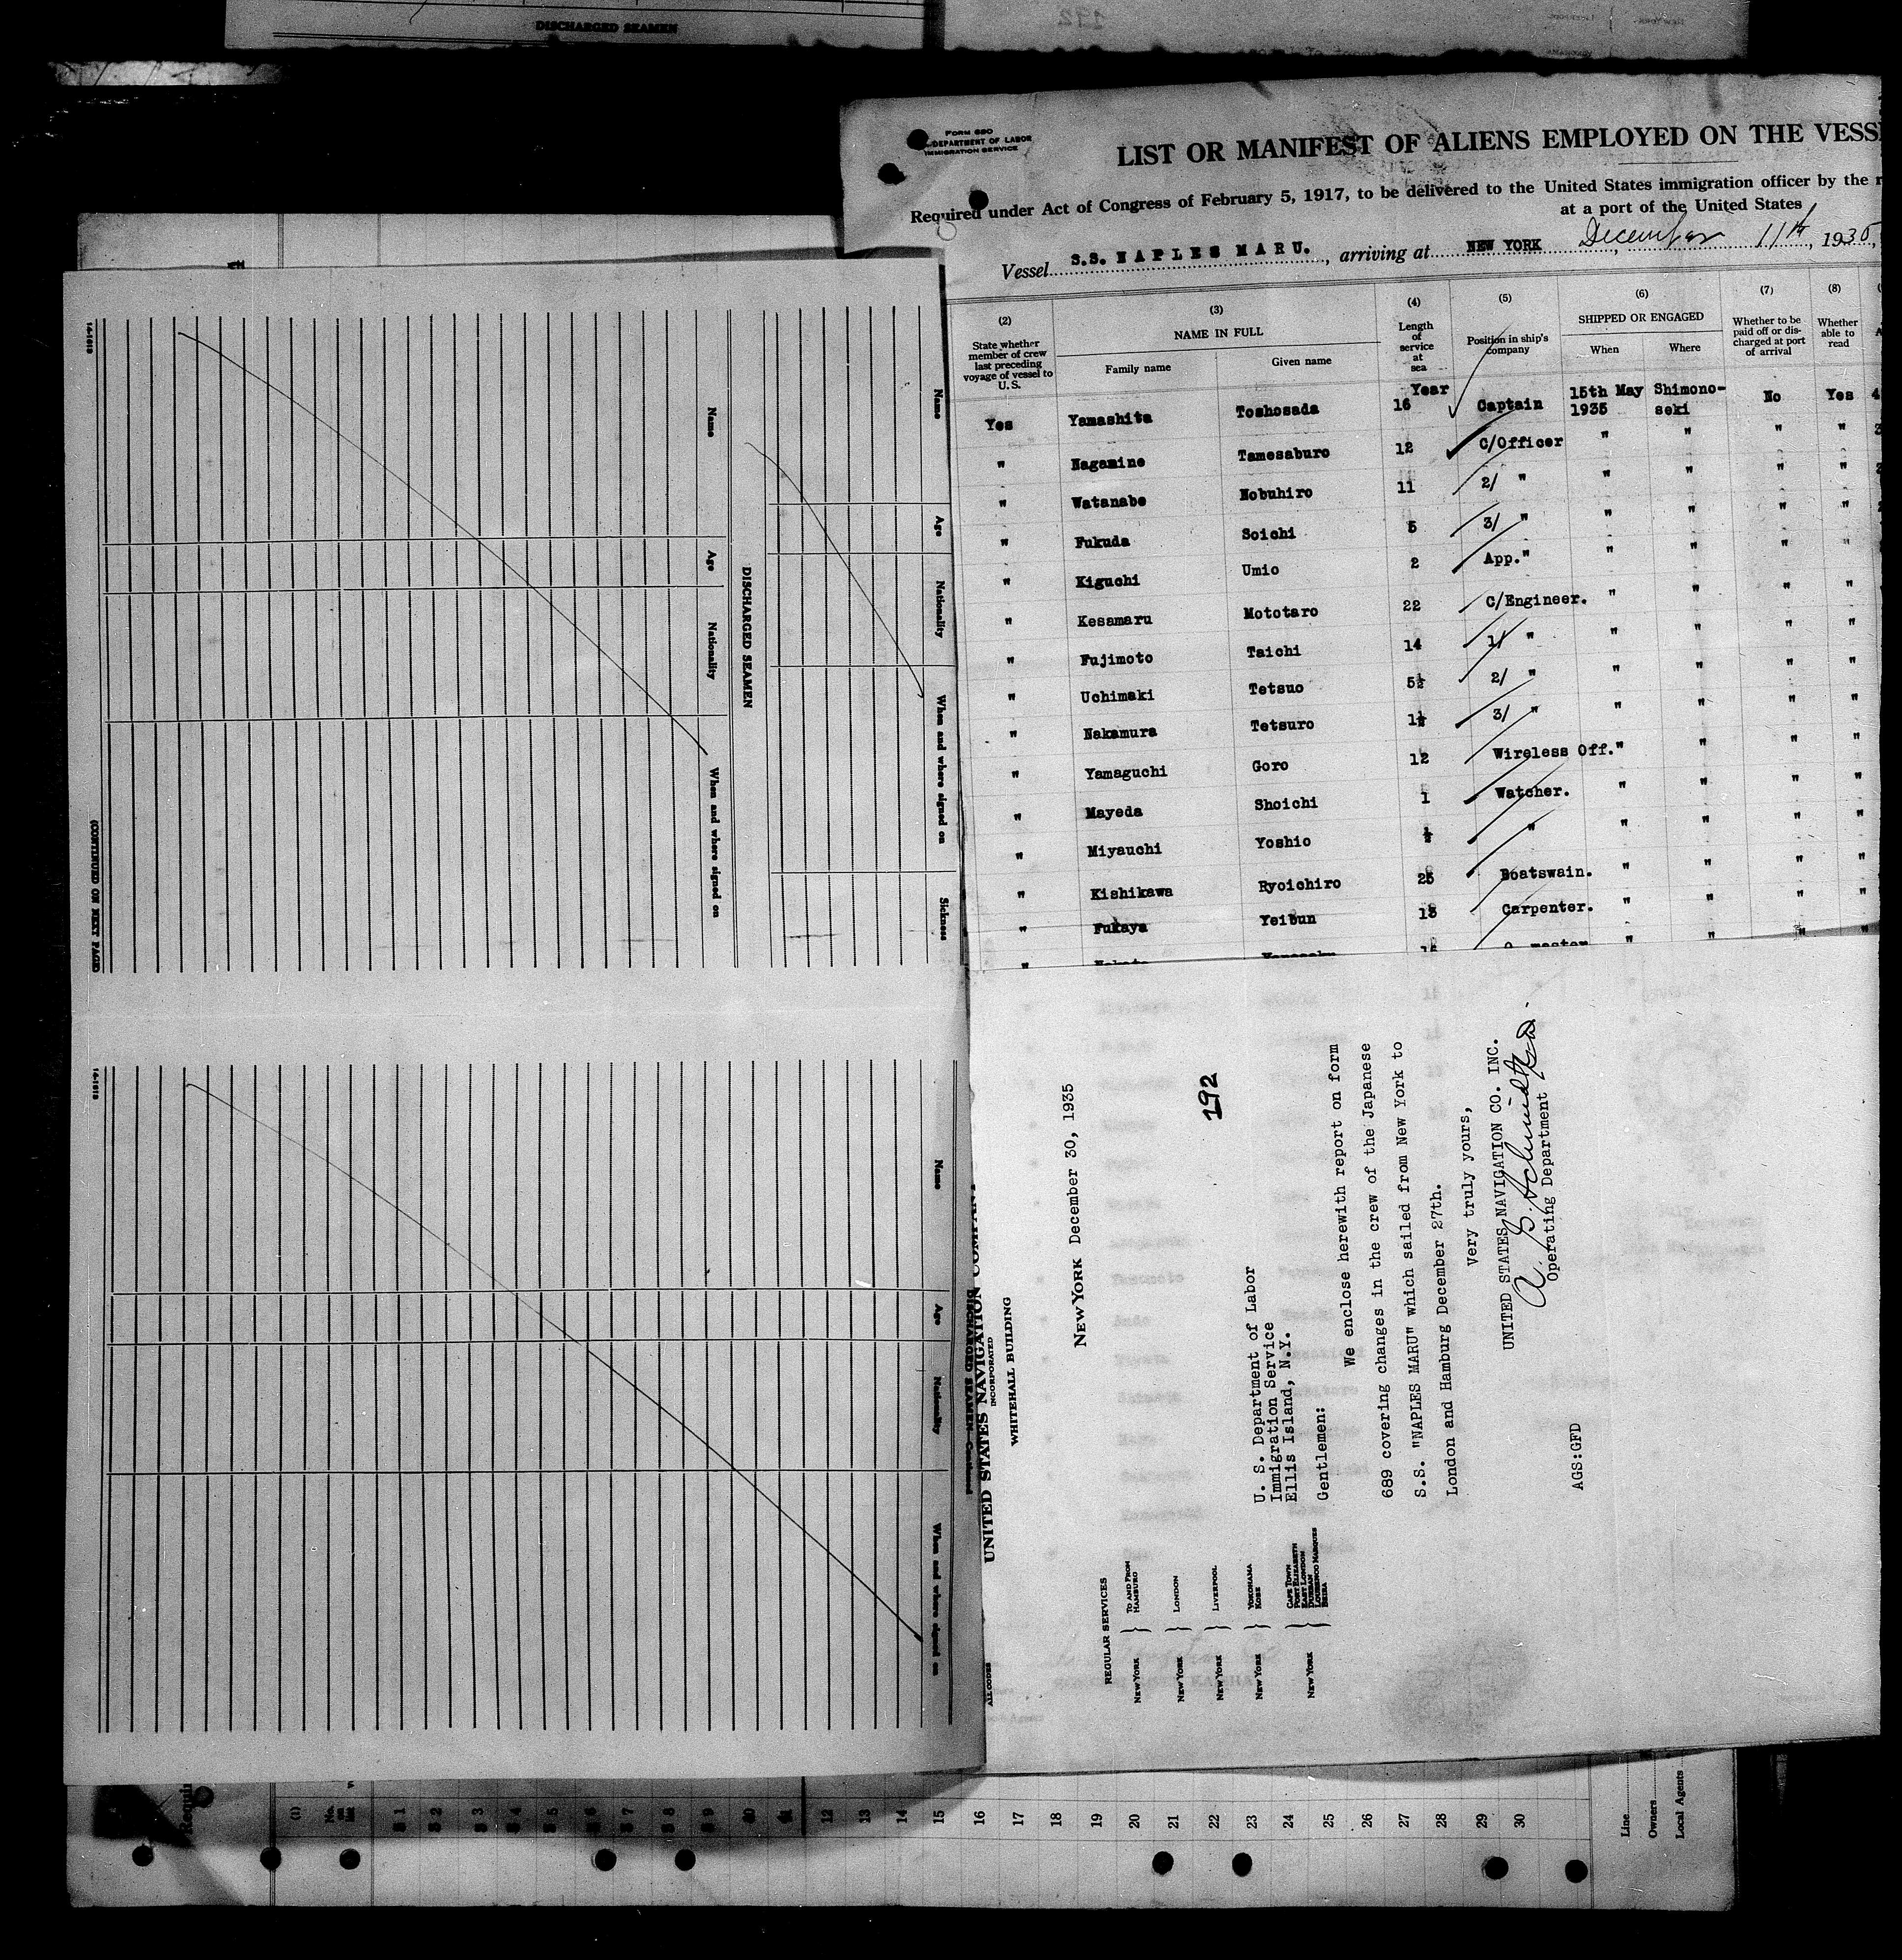 DISCHARGED SEAMEN
192
FORM 680
DEPARTMENT OF LABOR
IMMIGRATION SERVICE
LIST OR MANIFEST OF ALIENS EMPLOYED ON THE
Required under Act of Congress of February 5, 1917, to be delivered to the United States immigration officer by the
at a port of the United States
Vessel S.S. NAPLES MARU., arriving at NEW YORK, December 11th, 1935,
(2) (3) (4) (5) (6) (7) (8)
State whether member of crew last preceding voyage of vessel to U. S.
NAME IN FULL
Family name Given name
Length of service at sea
Position in ship's company
SHIPPED OR ENGAGED
When Where
Whether to be paid off or discharged at port of arrival
Whether able to read
Year
Yes Yamashita Toshosada 16 Captain 15th May 1935 Shimono-seki No Yes
" Nagamine Tamesaburo 12 C/Officer " " " "
" Watanabe Nobuhiro 11 2/ " " " " "
" Fukuda Soichi 5 3/ " " " " "
" Kiguchi Umio 2 App." " " " "
" Kesamaru Mototaro 22 C/Engineer. " " " "
" Fujimoto Taichi 14 1/ " " " " "
" Uchimaki Tetsuo 5½ 2/ " " " " "
" Nakamura Tetsuro 1½ 3/ " " " " "
" Yamaguchi Goro 12 Wireless Off." " " "
" Mayeda Shoichi 1 Watcher. " " " "
" Miyauchi Yoshio " " " " "
" Kishikawa Ryoichiro Boatswain. " " " "
" Fukaya Yeibun Carpenter. " " " "
14-1618
Name Age Nationality When and where signed on Sickness
DISCHARGED SEAMEN
Name Age Nationality When and where signed on
(CONTINUED ON NEXT PAGE)
14-1618
DISCHARGED SEAMEN—Continued
Name Age Nationality When and where signed on
UNITED STATES NAVIGATION COMPANY
INCORPORATED
WHITEHALL BUILDING
ALL CODES
NEW YORK December 30, 1935
192
REGULAR SERVICES
NEW YORK } TO AND FROM HAMBURG
NEW YORK } LONDON
NEW YORK } LIVERPOOL
NEW YORK } YOKOHAMA KOBE
NEW YORK } CAPE TOWN PORT ELIZABETH EAST LONDON DURBAN LOURENCO MARQUES BEIRA
U. S. Department of Labor
Immigration Service
Ellis Island, N.Y.
Gentlemen:
We enclose herewith report on form
689 covering changes in the crew of the Japanese
S.S. "NAPLES MARU" which sailed from New York to
London and Hamburg December 27th.
Very truly yours,
UNITED STATES NAVIGATION CO. INC.
Operating Department
AGS:GFD
(1)
No. on list
12 13 14 15 16 17 18 19 20 21 22 23 24 25 26 27 28 29 30
Line
Owners
Local Agents